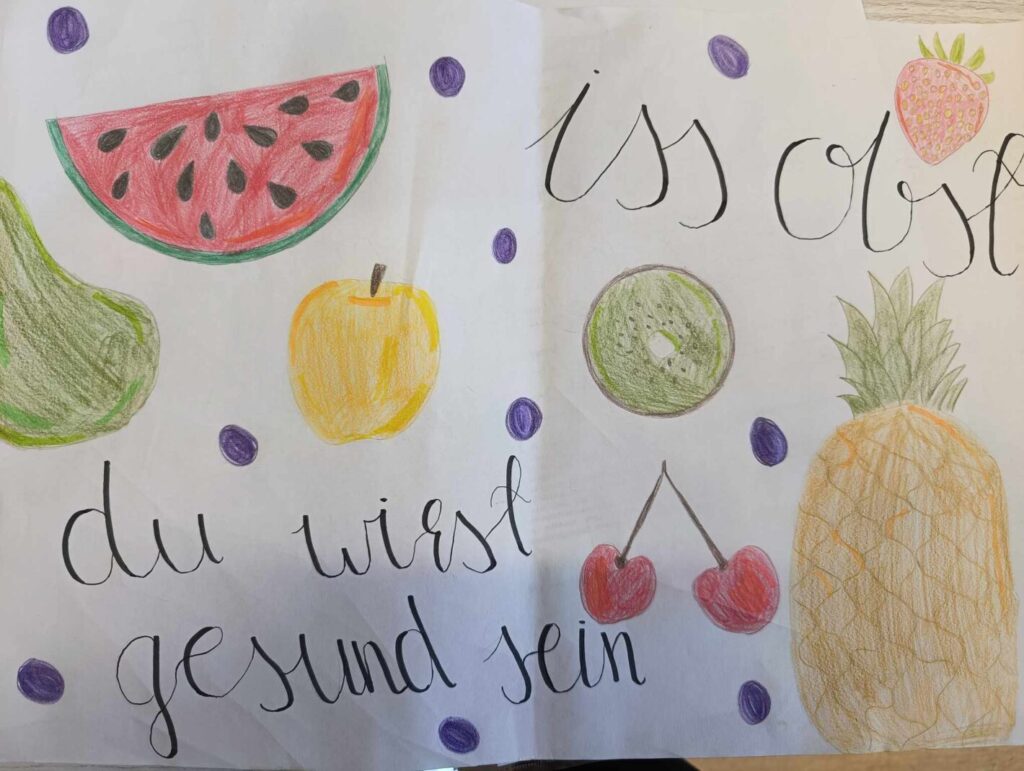 iss obst
du wirst
gesund sein